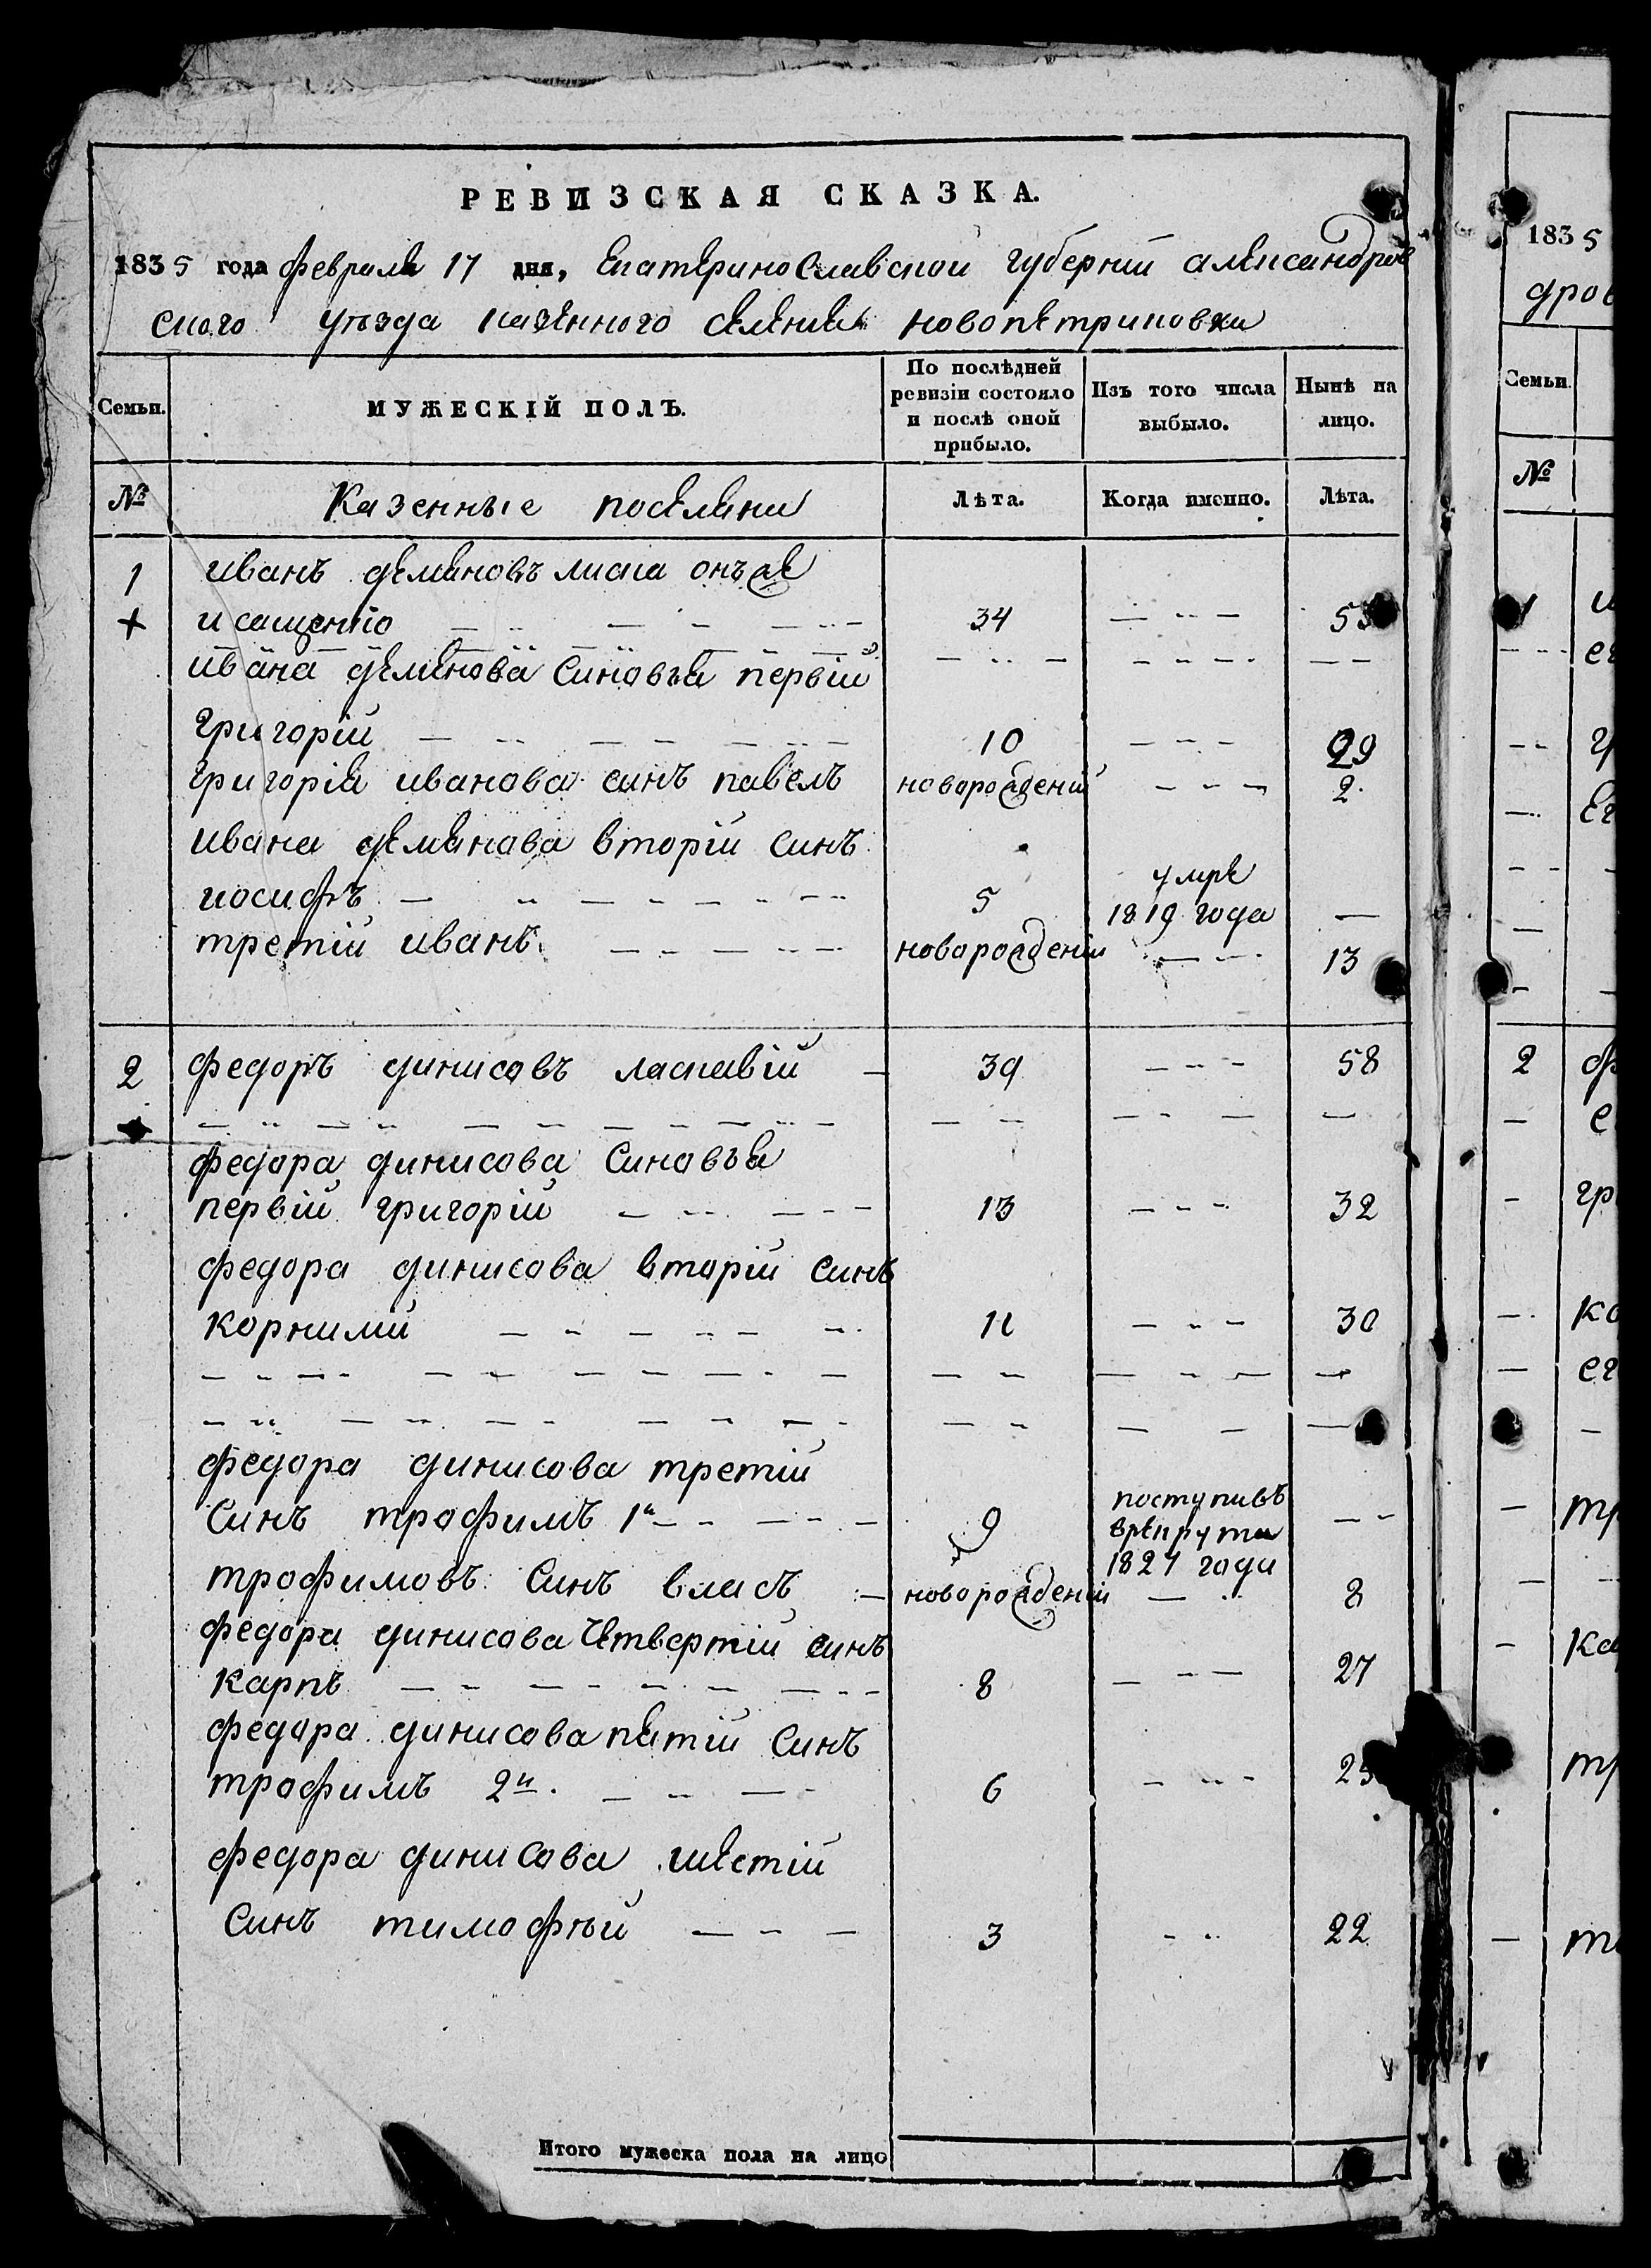 РЕВИЗСКАЯ СКАЗКА.
1835 года февраля 17 дня, Екатеринославской губерній александров
ского уѣзда казенного селения новопетриковки
Семьи.
МУЖЕСКІЙ ПОЛЪ.
По послѣдней ревизіи состояло и послѣ оной прибыло.
Изъ того числа выбыло.
Нынѣ на лицо.
№ Казенные поселяни Лѣта. Когда именно. Лѣта.
1 иванъ демяновъ онъже
34
ивана демянова синовья первій
григорій 10 29
григорія иванова синъ павелъ новорожденій 2
ивана демянова вторій синъ
иосифъ 5 умре 1819 года
третій иванъ новорожденій 13
2 федоръ динисовъ ласкавій 39 58
федора динисова синовья
первій григорій 13 32
федора динисова вторій синъ
корнилій 11 30
федора динисова третій
синъ трофимъ 1й 9 поступивъ врекрути 1827 года
трофимовъ синъ власъ новорожденій 8
федора динисова четвертій синъ
карпъ 8 27
федора динисова пятій синъ
трофимъ 2й 6 25
федора динисова шестій
синъ тимофѣй 3 22
Итого мужеска пола на лицо
1835
дров
Семьи.
№
2